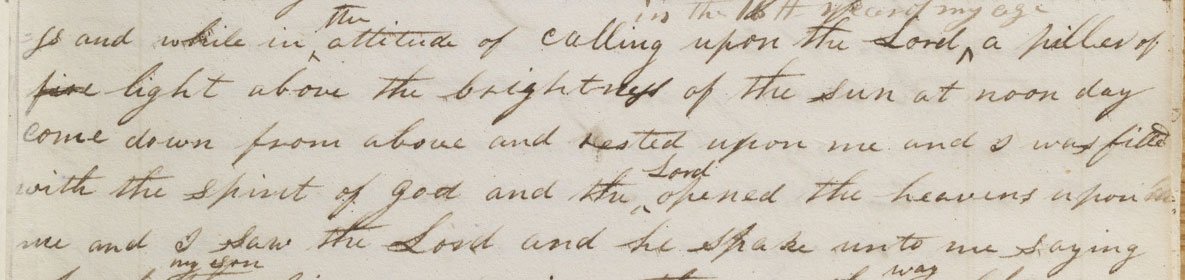 in the 16th year of my age
the
and while in attitude of calling upon the Lord a piller of
fire light above the brightness of the sun at noon day
come down from above and rested upon me and I was filled
with the spirit of god and the opened the heavens upon
Lord
me and I saw the Lord and he spake unto me saying
my son
way